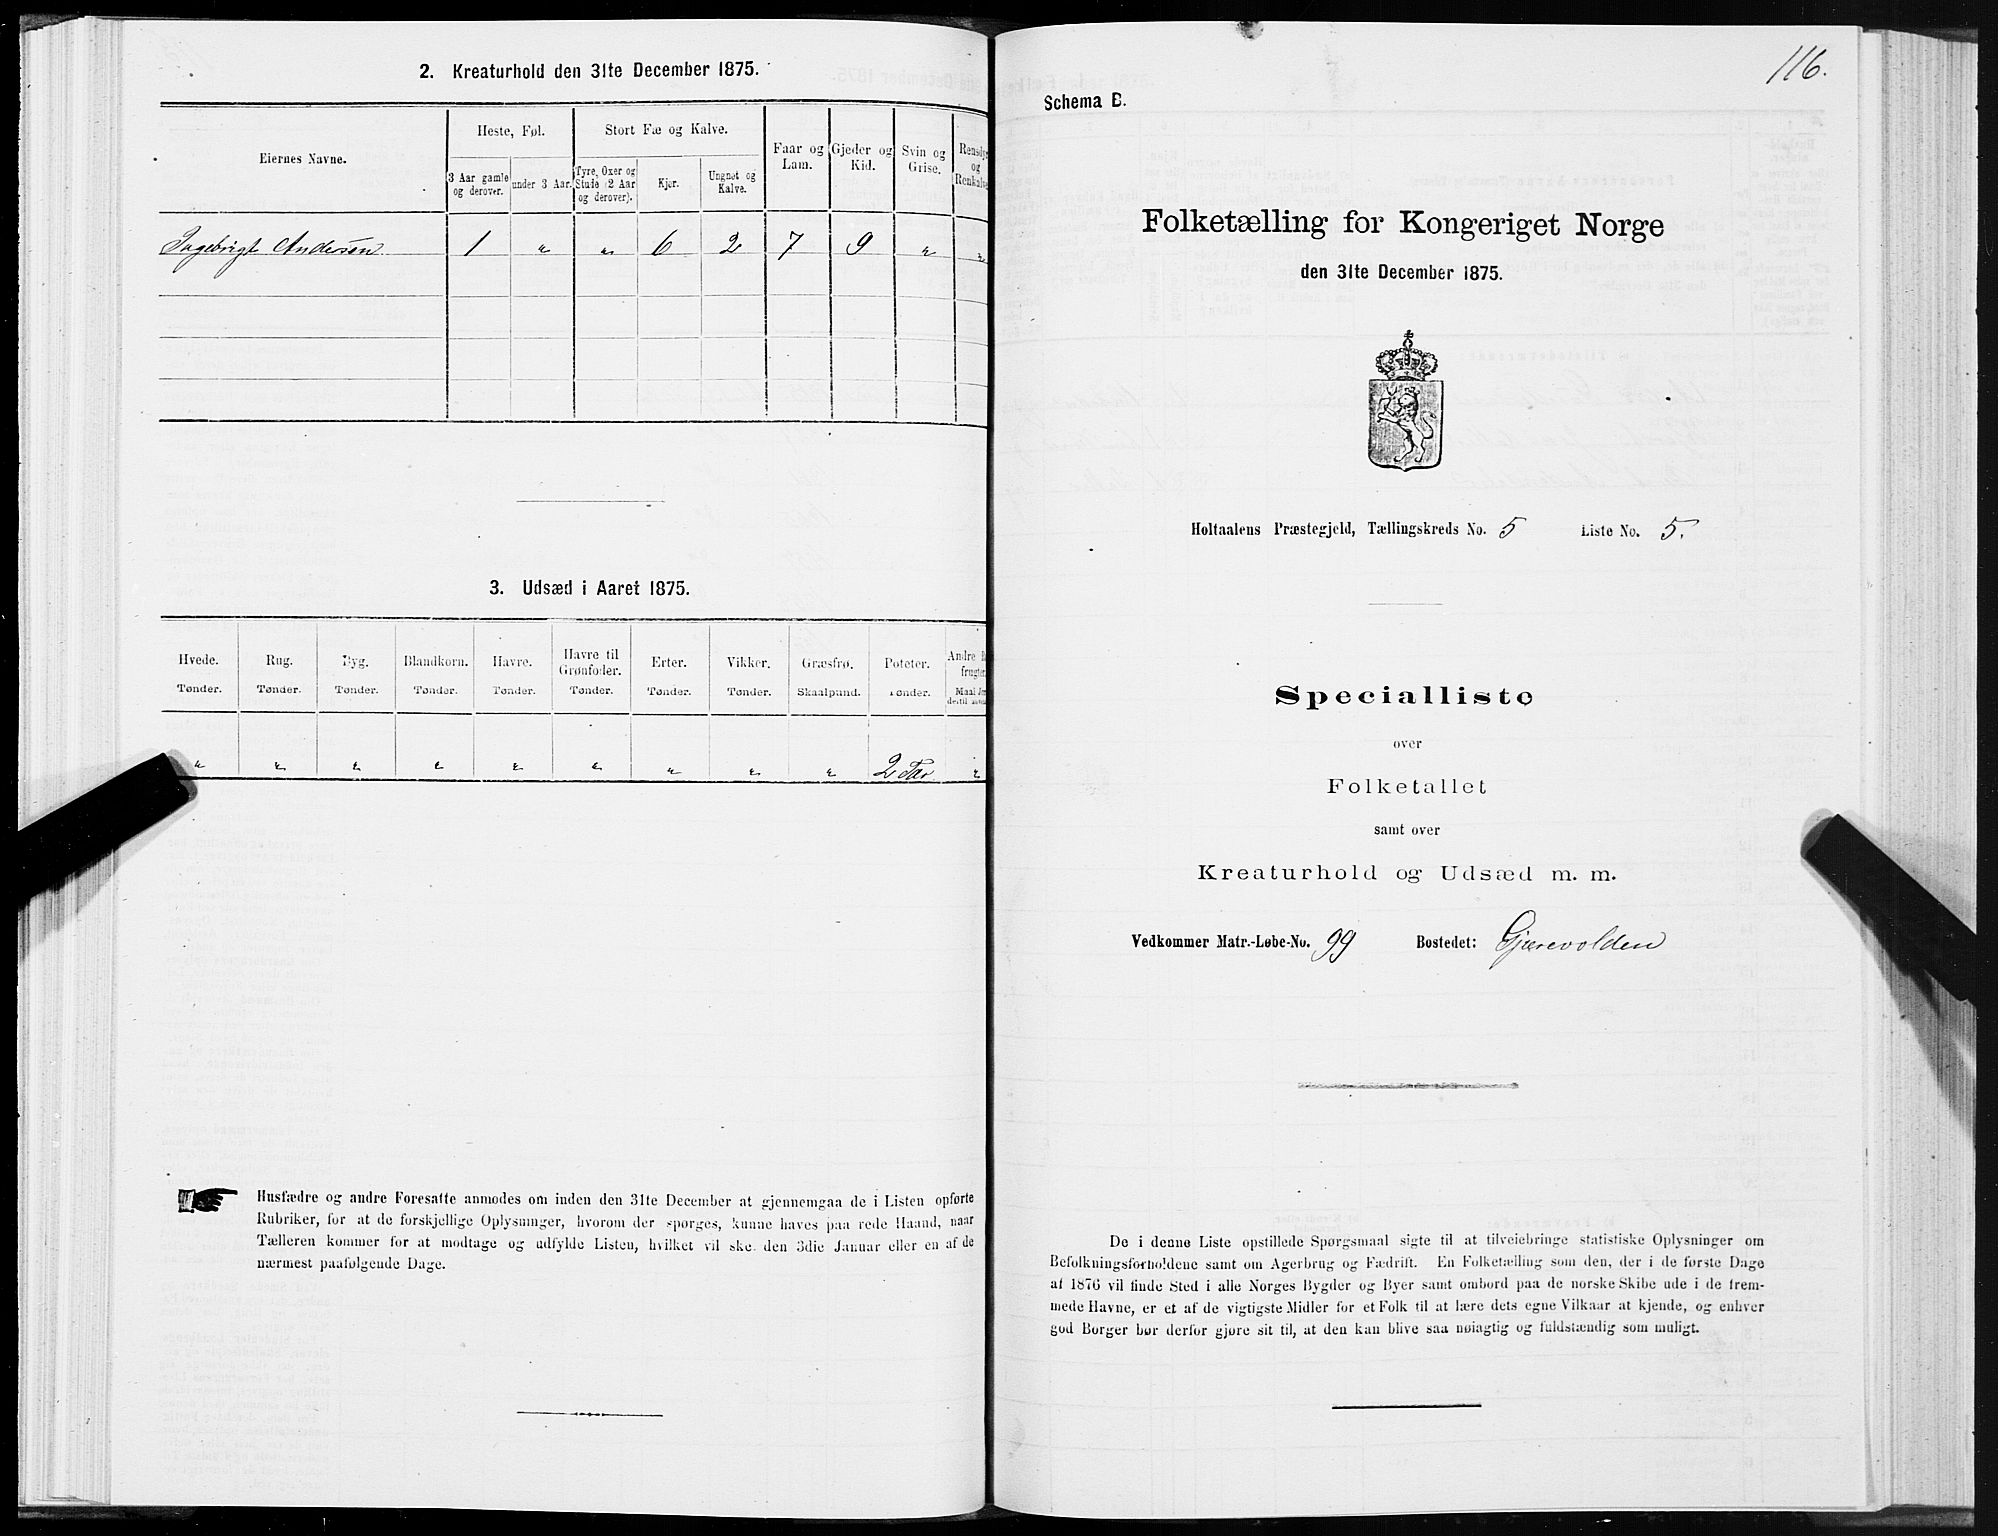 2. Kreaturhold den 31te December 1875.
Eiernes Navne.
Heste, Føl.
Stort Fæ og Kalve.
Faar og Lam.
Gjeder og Kid.
Svin og Grise.
Rensdyr og Renkalve
3 Aar gamle og derover.
under 3 Aar.
Tyre, Oxer og Stude (2 Aar og derover).
Kjør.
Ungnøt og Kalve.
Ingebrigt Andersen 1 " " 6 2 7 9 " "
3. Udsæd i Aaret 1875.
Hvede. Rug. Byg. Blandkorn. Havre. Havre til Grønfoder. Erter. Vikker. Græsfrø. Poteter. Andre
Tønder. Tønder. Tønder. Tønder. Tønder. Tønder. Tønder. Tønder. Skaalpund. Tønder. Maal
" " " " " " " " " 2 Tdr "
Husfædre og andre Foresatte anmodes om inden den 31te December at gjennemgaa de i Listen opførte
Rubriker, for at de forskjellige Oplysninger, hvorom der spørges, kunne haves paa rede Haand, naar
Tælleren kommer for at modtage og udfylde Listen, hvilket vil ske den 3die Januar eller en af de
nærmest paafølgende Dage.
116.
Schema B.
Folketælling for Kongeriget Norge
den 31te December 1875.
Holtaalens Præstegjeld, Tællingskreds No. 5 Liste No. 5.
Specialliste
over
Folketallet
samt over
Kreaturhold og Udsæd m. m.
Vedkommer Matr.-Løbe-No. 99 Bostedet: Gjærevolden
De i denne Liste opstillede Spørgsmaal sigte til at tilveiebringe statistiske Oplysninger om
Befolkningsforholdene samt om Agerbrug og Fædrift. En Folketælling som den, der i de første Dage
af 1876 vil finde Sted i alle Norges Bygder og Byer samt ombord paa de norske Skibe ude i de frem-
mede Havne, er et af de vigtigste Midler for et Folk til at lære dets egne Vilkaar at kjende, og enhver
god Borger bør derfor gjøre sit til, at den kan blive saa nøiagtig og fuldstændig som muligt.